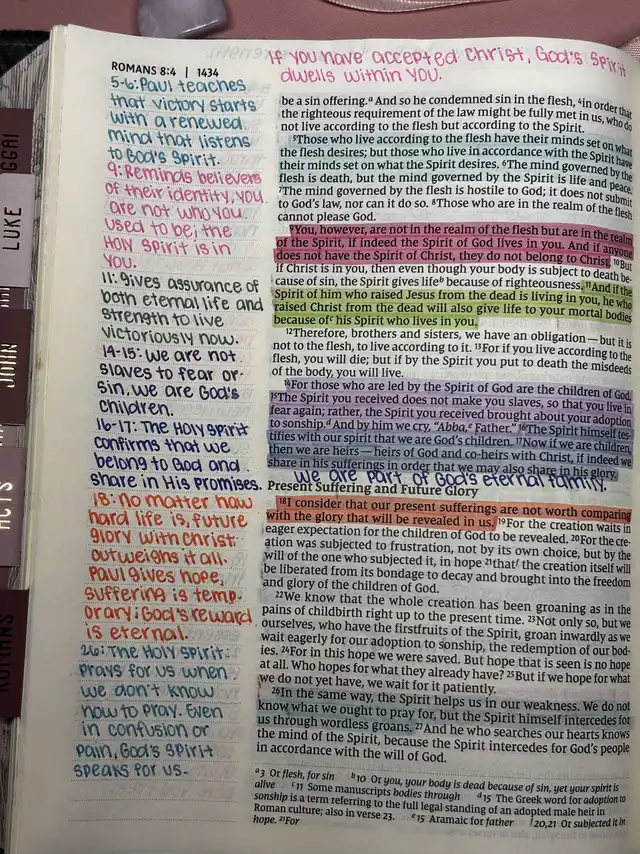 If you have accepted Christ, God's Spirit
dwells within you.
ROMANS 8:4 | 1434
5-6: Paul teaches
that victory starts
with a renewed
mind that listens
to God's Spirit.
9: Reminds believers
of their identity, you
are not who you
used to be, the
Holy Spirit is in
you.
11: gives assurance of
both eternal life and
strength to live
victoriously now.
14-15: We are not
slaves to fear or
sin, we are God's
children.
16-17: The Holy Spirit
confirms that we
belong to God and
share in His promises.
18: No matter how
hard life is, future
glory with Christ
outweighs it all.
Paul gives hope,
suffering is temp-
orary; God's reward
is eternal.
26: The Holy Spirit
prays for us when
we don't know
how to pray. Even
in confusion or
pain, God's Spirit
speaks for us.
be a sin offering.a And so he condemned sin in the flesh, 4in order that
the righteous requirement of the law might be fully met in us, who do
not live according to the flesh but according to the Spirit.
5Those who live according to the flesh have their minds set on what
the flesh desires; but those who live in accordance with the Spirit have
their minds set on what the Spirit desires. 6The mind governed by the
flesh is death, but the mind governed by the Spirit is life and peace.
7The mind governed by the flesh is hostile to God; it does not submit
to God's law, nor can it do so. 8Those who are in the realm of the flesh
cannot please God.
9You, however, are not in the realm of the flesh but are in the realm
of the Spirit, if indeed the Spirit of God lives in you. And if anyone
does not have the Spirit of Christ, they do not belong to Christ. 10But
if Christ is in you, then even though your body is subject to death be-
cause of sin, the Spirit gives lifeb because of righteousness. 11And if the
Spirit of him who raised Jesus from the dead is living in you, he who
raised Christ from the dead will also give life to your mortal bodies
because ofc his Spirit who lives in you.
12Therefore, brothers and sisters, we have an obligation — but it is
not to the flesh, to live according to it. 13For if you live according to the
flesh, you will die; but if by the Spirit you put to death the misdeeds
of the body, you will live.
14For those who are led by the Spirit of God are the children of God.
15The Spirit you received does not make you slaves, so that you live in
fear again; rather, the Spirit you received brought about your adoption
to sonship.d And by him we cry, "Abba,e Father." 16The Spirit himself tes-
tifies with our spirit that we are God's children. 17Now if we are children,
then we are heirs — heirs of God and co-heirs with Christ, if indeed we
share in his sufferings in order that we may also share in his glory.
We are part of God's eternal family.
Present Suffering and Future Glory
18I consider that our present sufferings are not worth comparing
with the glory that will be revealed in us. 19For the creation waits in
eager expectation for the children of God to be revealed. 20For the cre-
ation was subjected to frustration, not by its own choice, but by the
will of the one who subjected it, in hope 21thatf the creation itself will
be liberated from its bondage to decay and brought into the freedom
and glory of the children of God.
22We know that the whole creation has been groaning as in the
pains of childbirth right up to the present time. 23Not only so, but we
ourselves, who have the firstfruits of the Spirit, groan inwardly as we
wait eagerly for our adoption to sonship, the redemption of our bod-
ies. 24For in this hope we were saved. But hope that is seen is no hope
at all. Who hopes for what they already have? 25But if we hope for what
we do not yet have, we wait for it patiently.
26In the same way, the Spirit helps us in our weakness. We do not
know what we ought to pray for, but the Spirit himself intercedes for
us through wordless groans. 27And he who searches our hearts knows
the mind of the Spirit, because the Spirit intercedes for God's people
in accordance with the will of God.
a3 Or flesh, for sin b10 Or you, your body is dead because of sin, yet your spirit is
alive c11 Some manuscripts bodies through d15 The Greek word for adoption to
sonship is a term referring to the full legal standing of an adopted male heir in
Roman culture; also in verse 23. e15 Aramaic for father f20,21 Or subjected it in
hope. 21For
GGAI
LUKE
JOHN
ACTS
ROMANS